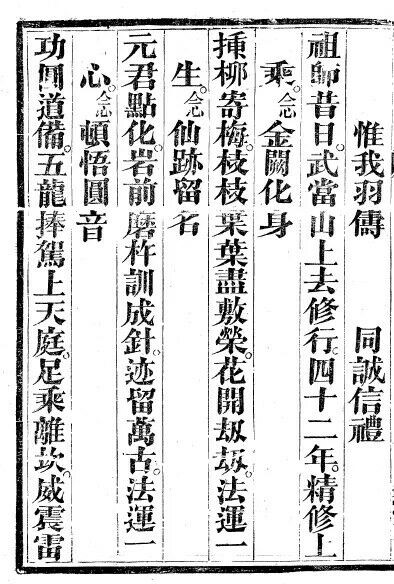 惟我羽儔　同誠信禮
祖師昔日。武當山上去修行。四十二年。精修上
乘。念金闕化身
揷栁寄梅。枝枝葉葉盡敷榮。花開刼刼。法運一
生。念仙跡留名
元君點化。岩前磨杵訓成針。迹留萬古。法運一
心。念頓悟圓音
功圓道備。五龍捧駕上天庭。足乘離坎。威震雷